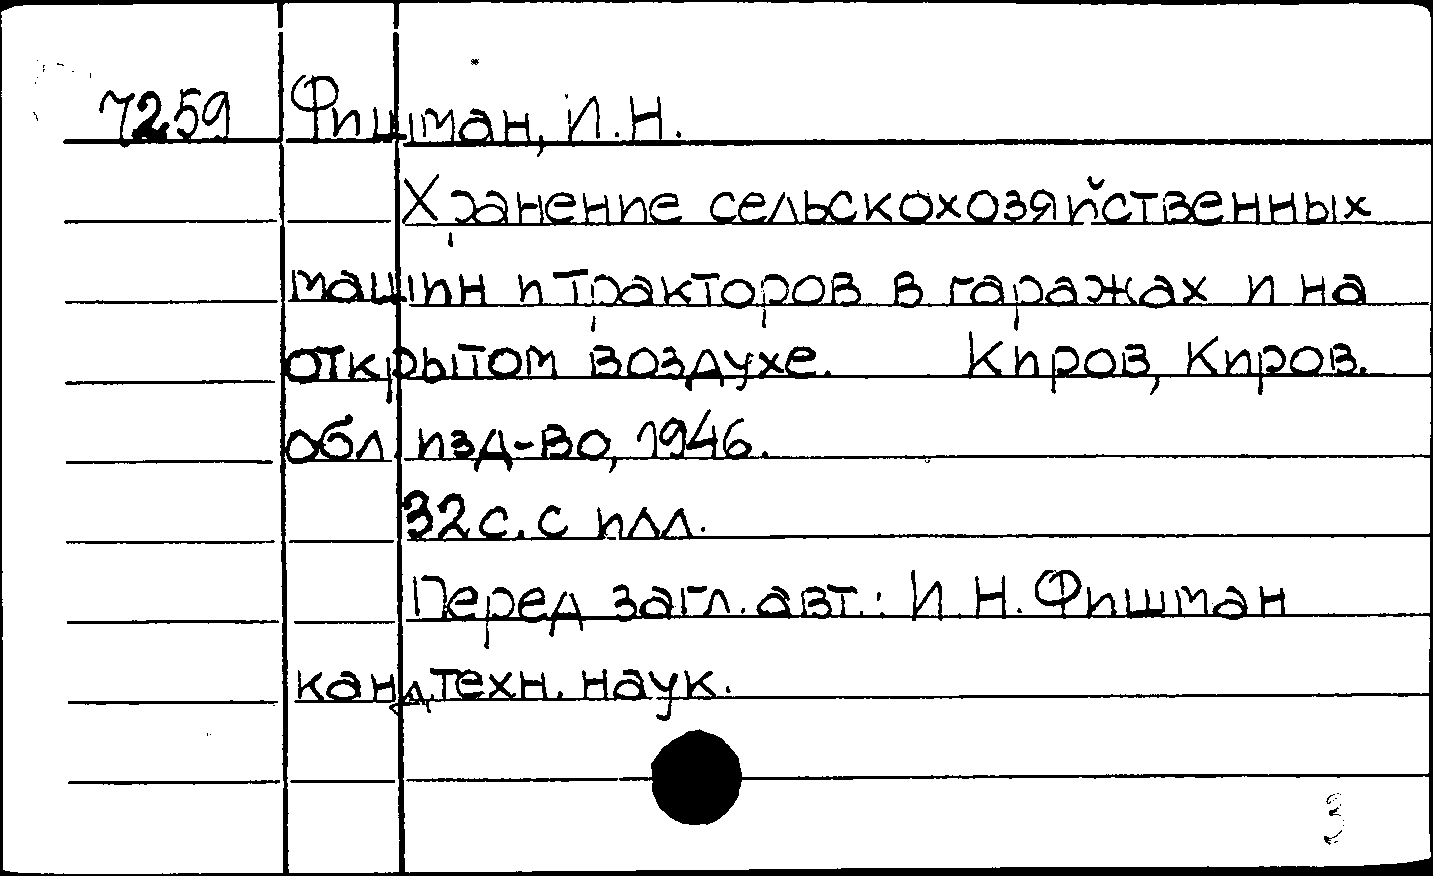 7259 Фишман, И.Н.
Хранение сельскохозяйственных
машин и тракторов в гаражах и на
открытом воздухе. Киров, Киров.
обл. изд-во, 1946.
32 с. с илл.
Перед загл. авт.: И.Н. Фишман
канд. техн. наук.
3